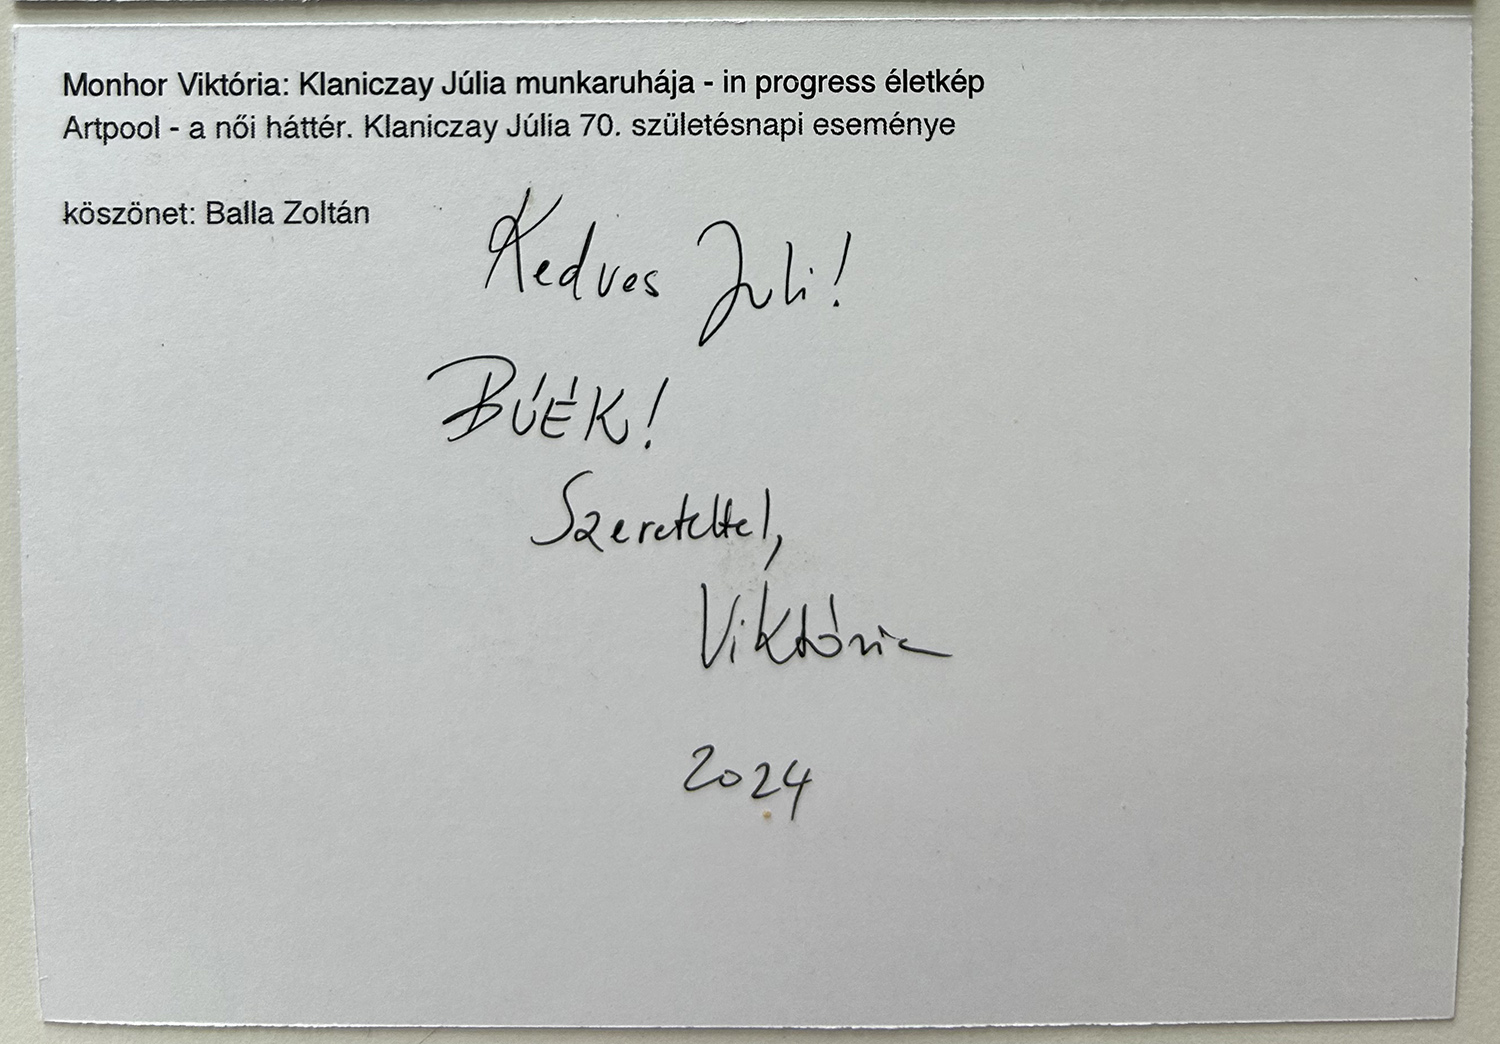 Monhor Viktória: Klaniczay Júlia munkaruhája - in progress életkép
Artpool - a női háttér. Klaniczay Júlia 70. születésnapi eseménye
köszönet: Balla Zoltán
Kedves Juli!
BÚÉK!
Szeretettel,
Viktória
2024